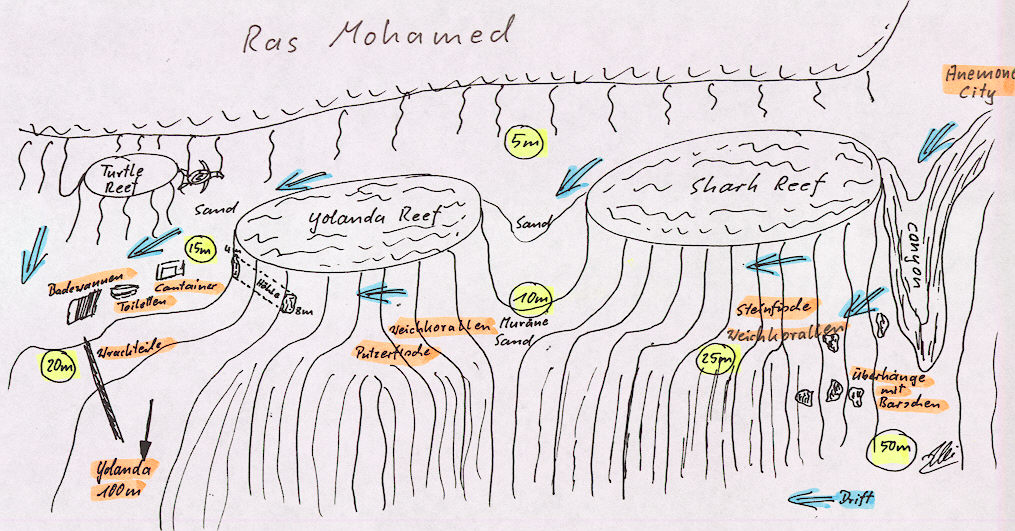 Ras Mohamed
Anemone
City
5m
Turtle
Reef
Shark Reef
Sand
Yolanda Reef
Sand
canyon
15m
4
Badewannen
Cantainer
Höhle
Toiletten
8m
10m
Steinfische
Weichkorallen
Muräne
Sand
Weichkorallen
Wrackteile
Putzerfische
20m
25m
Überhänge
mit
Barschen
50m
Yolanda
100m
Drift